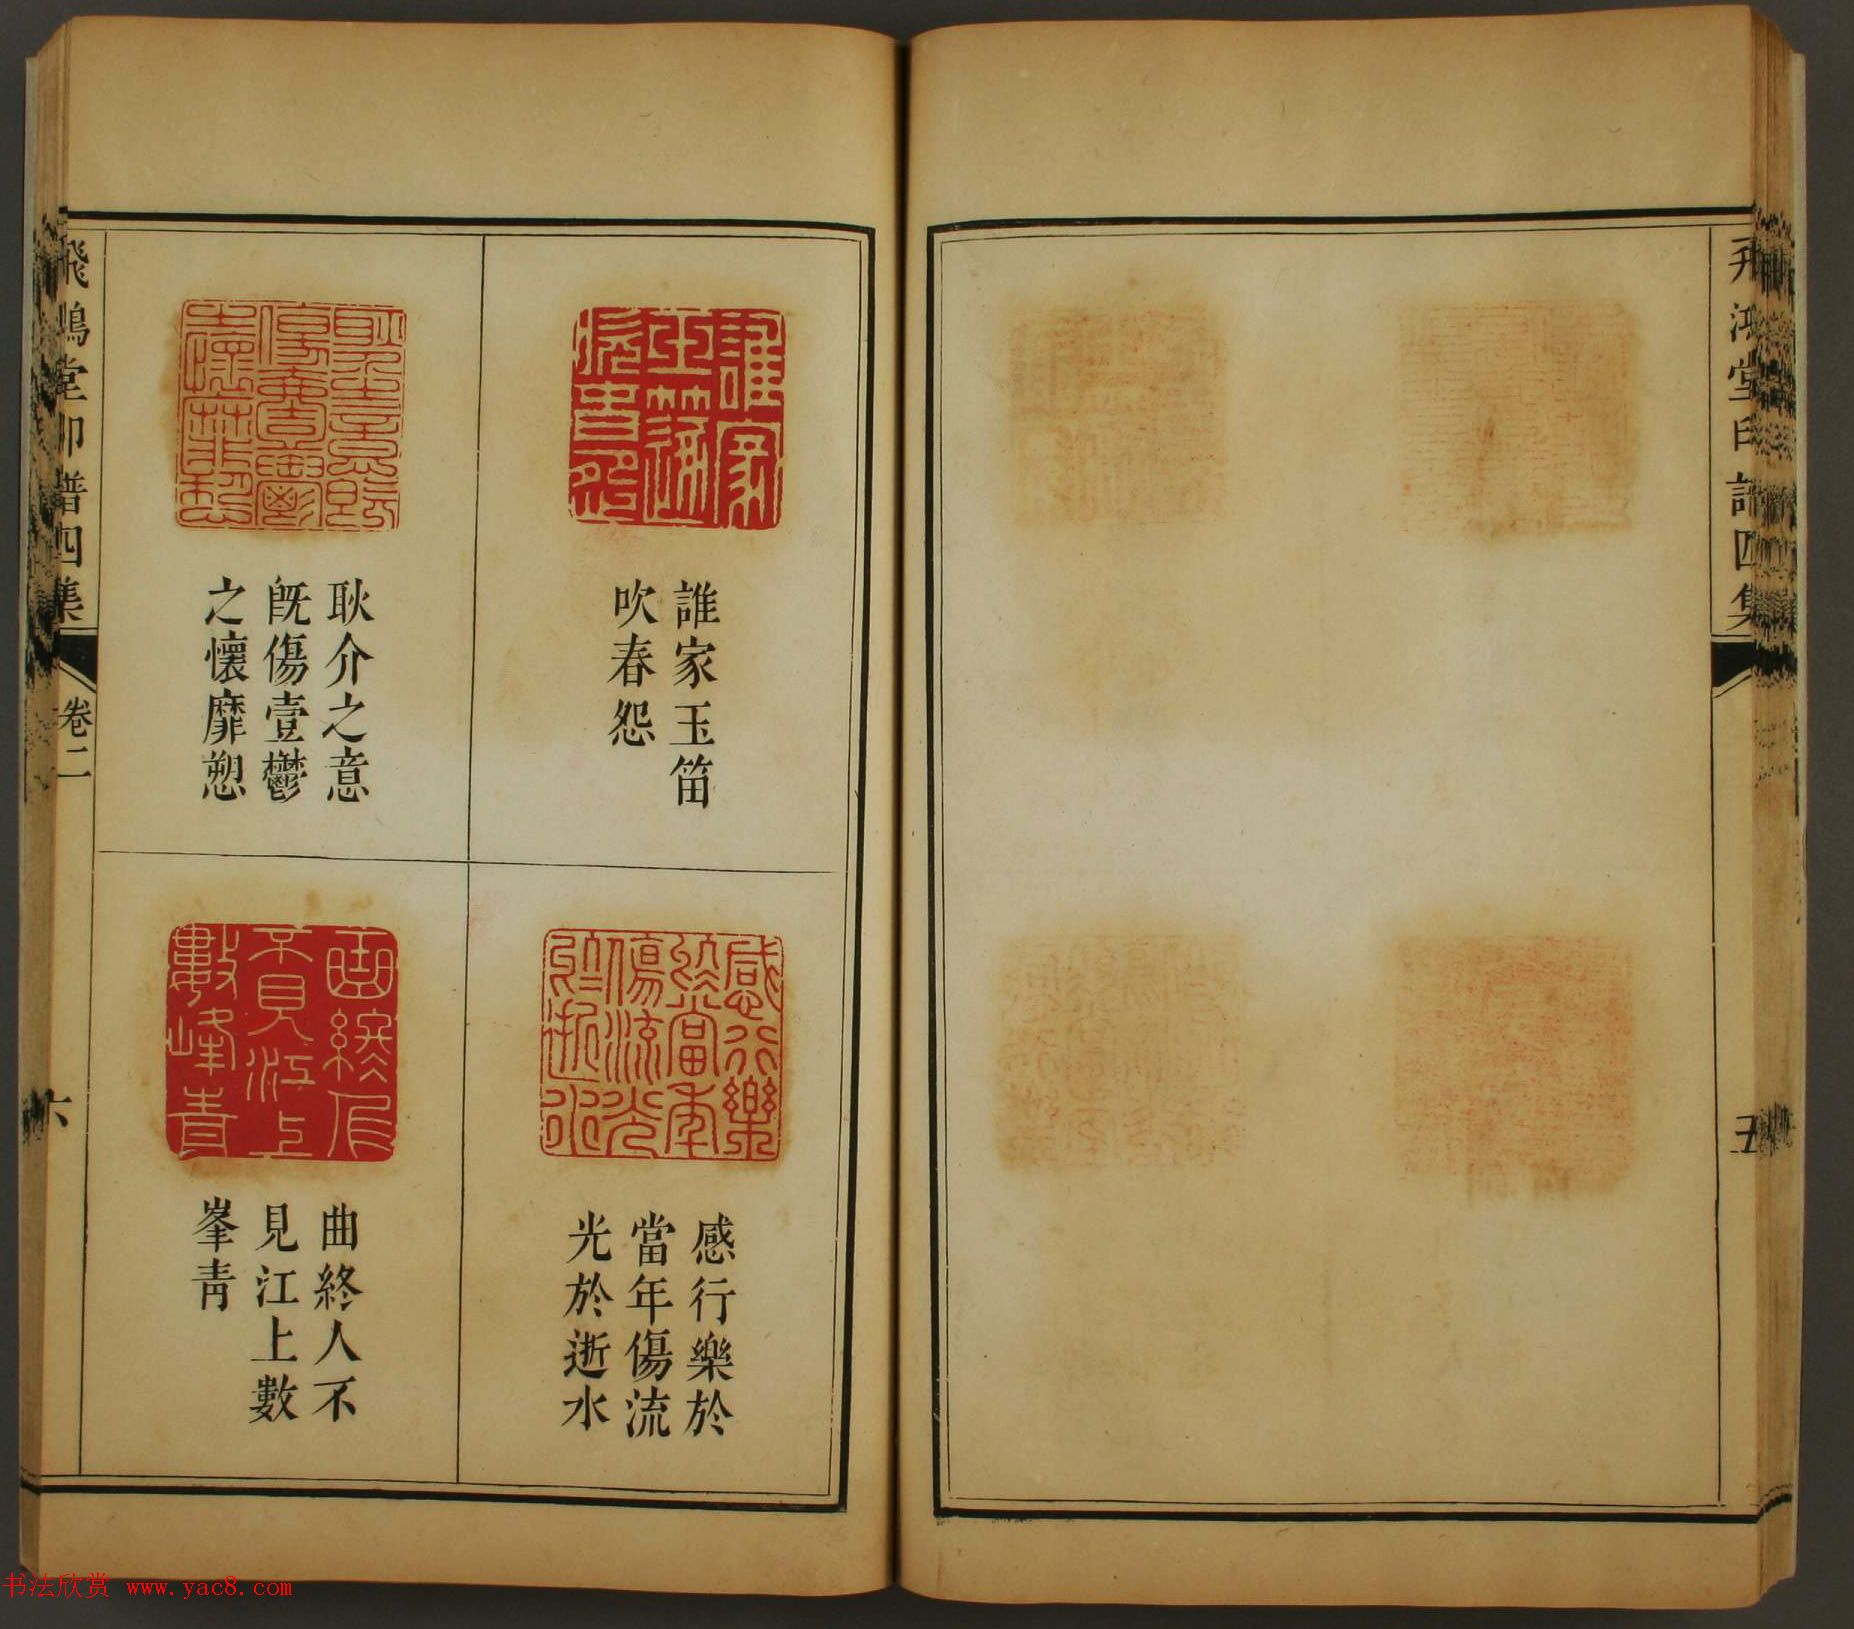 飛鴻堂印譜四集
五
誰家玉笛
吹春怨
耿介之意
旣傷壹鬱
之懷靡愬
感行樂於
當年傷流
光於逝水
曲終人不
見江上數
峯靑
飛鴻堂印譜四集
卷二
六
书法欣赏 www.yac8.com